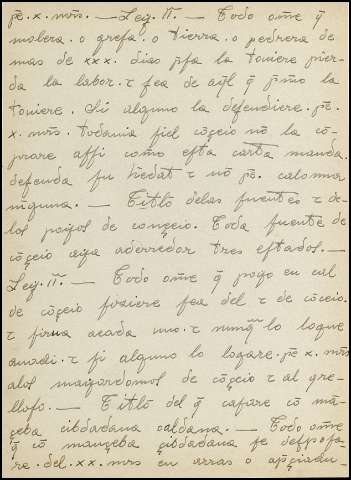 p̃e .x. mr̃s. — Ley. II. — Todo om̃e q̃
molera . o greſa . o tierra . o pedrera de
mas de xxx. dias p̃ſa la touiere pier-
da la labor. τ ſea de aq̃l q̃ p̃mo la
touiere. Si alguno la defendiere . p̃e.
x. mr̃s. Todauia ſiel cõçeio nõ la cõ-
prare aſſi como eſta carta manda.
defenda ſu hedat τ nõ p̃e. calonna
ninguna. — Titlõ delas fuentes τ de-
los poços de conçeio. Toda fuente de
cõçeio aya aderredor tres eſtados. —
Ley. II. — Todo om̃e q̃ poço en cal
de cõçeio fiziere ſea del τ de cõceio.
τ ſirua acada uno. τ nunq̃ lo logue
anadi. τ ſi alguno lo logare. p̃e x. mr̃s
alos mayordomos de cõçeio τ al que-
lloſo. — Titlõ del q̃ caſare cõ mã-
çeba cibdadana caldana. — Todo om̃e
q̃ cõ mançeba çibdadana ſe deſpoſa-
re . del. xx. mrs en arras o ap̃çiadu-